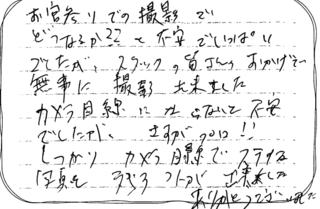 お宮参りでの撮影で
どうなるか??と不安でいっぱい
でしたが、スタッフの皆さんのおかげで
無事に撮影出来ました
カメラ目線に
不安
でしたが、さすがプロ!!
しっかりカメラ目線で ステキな
写真を
出来ました
ありがとうございました